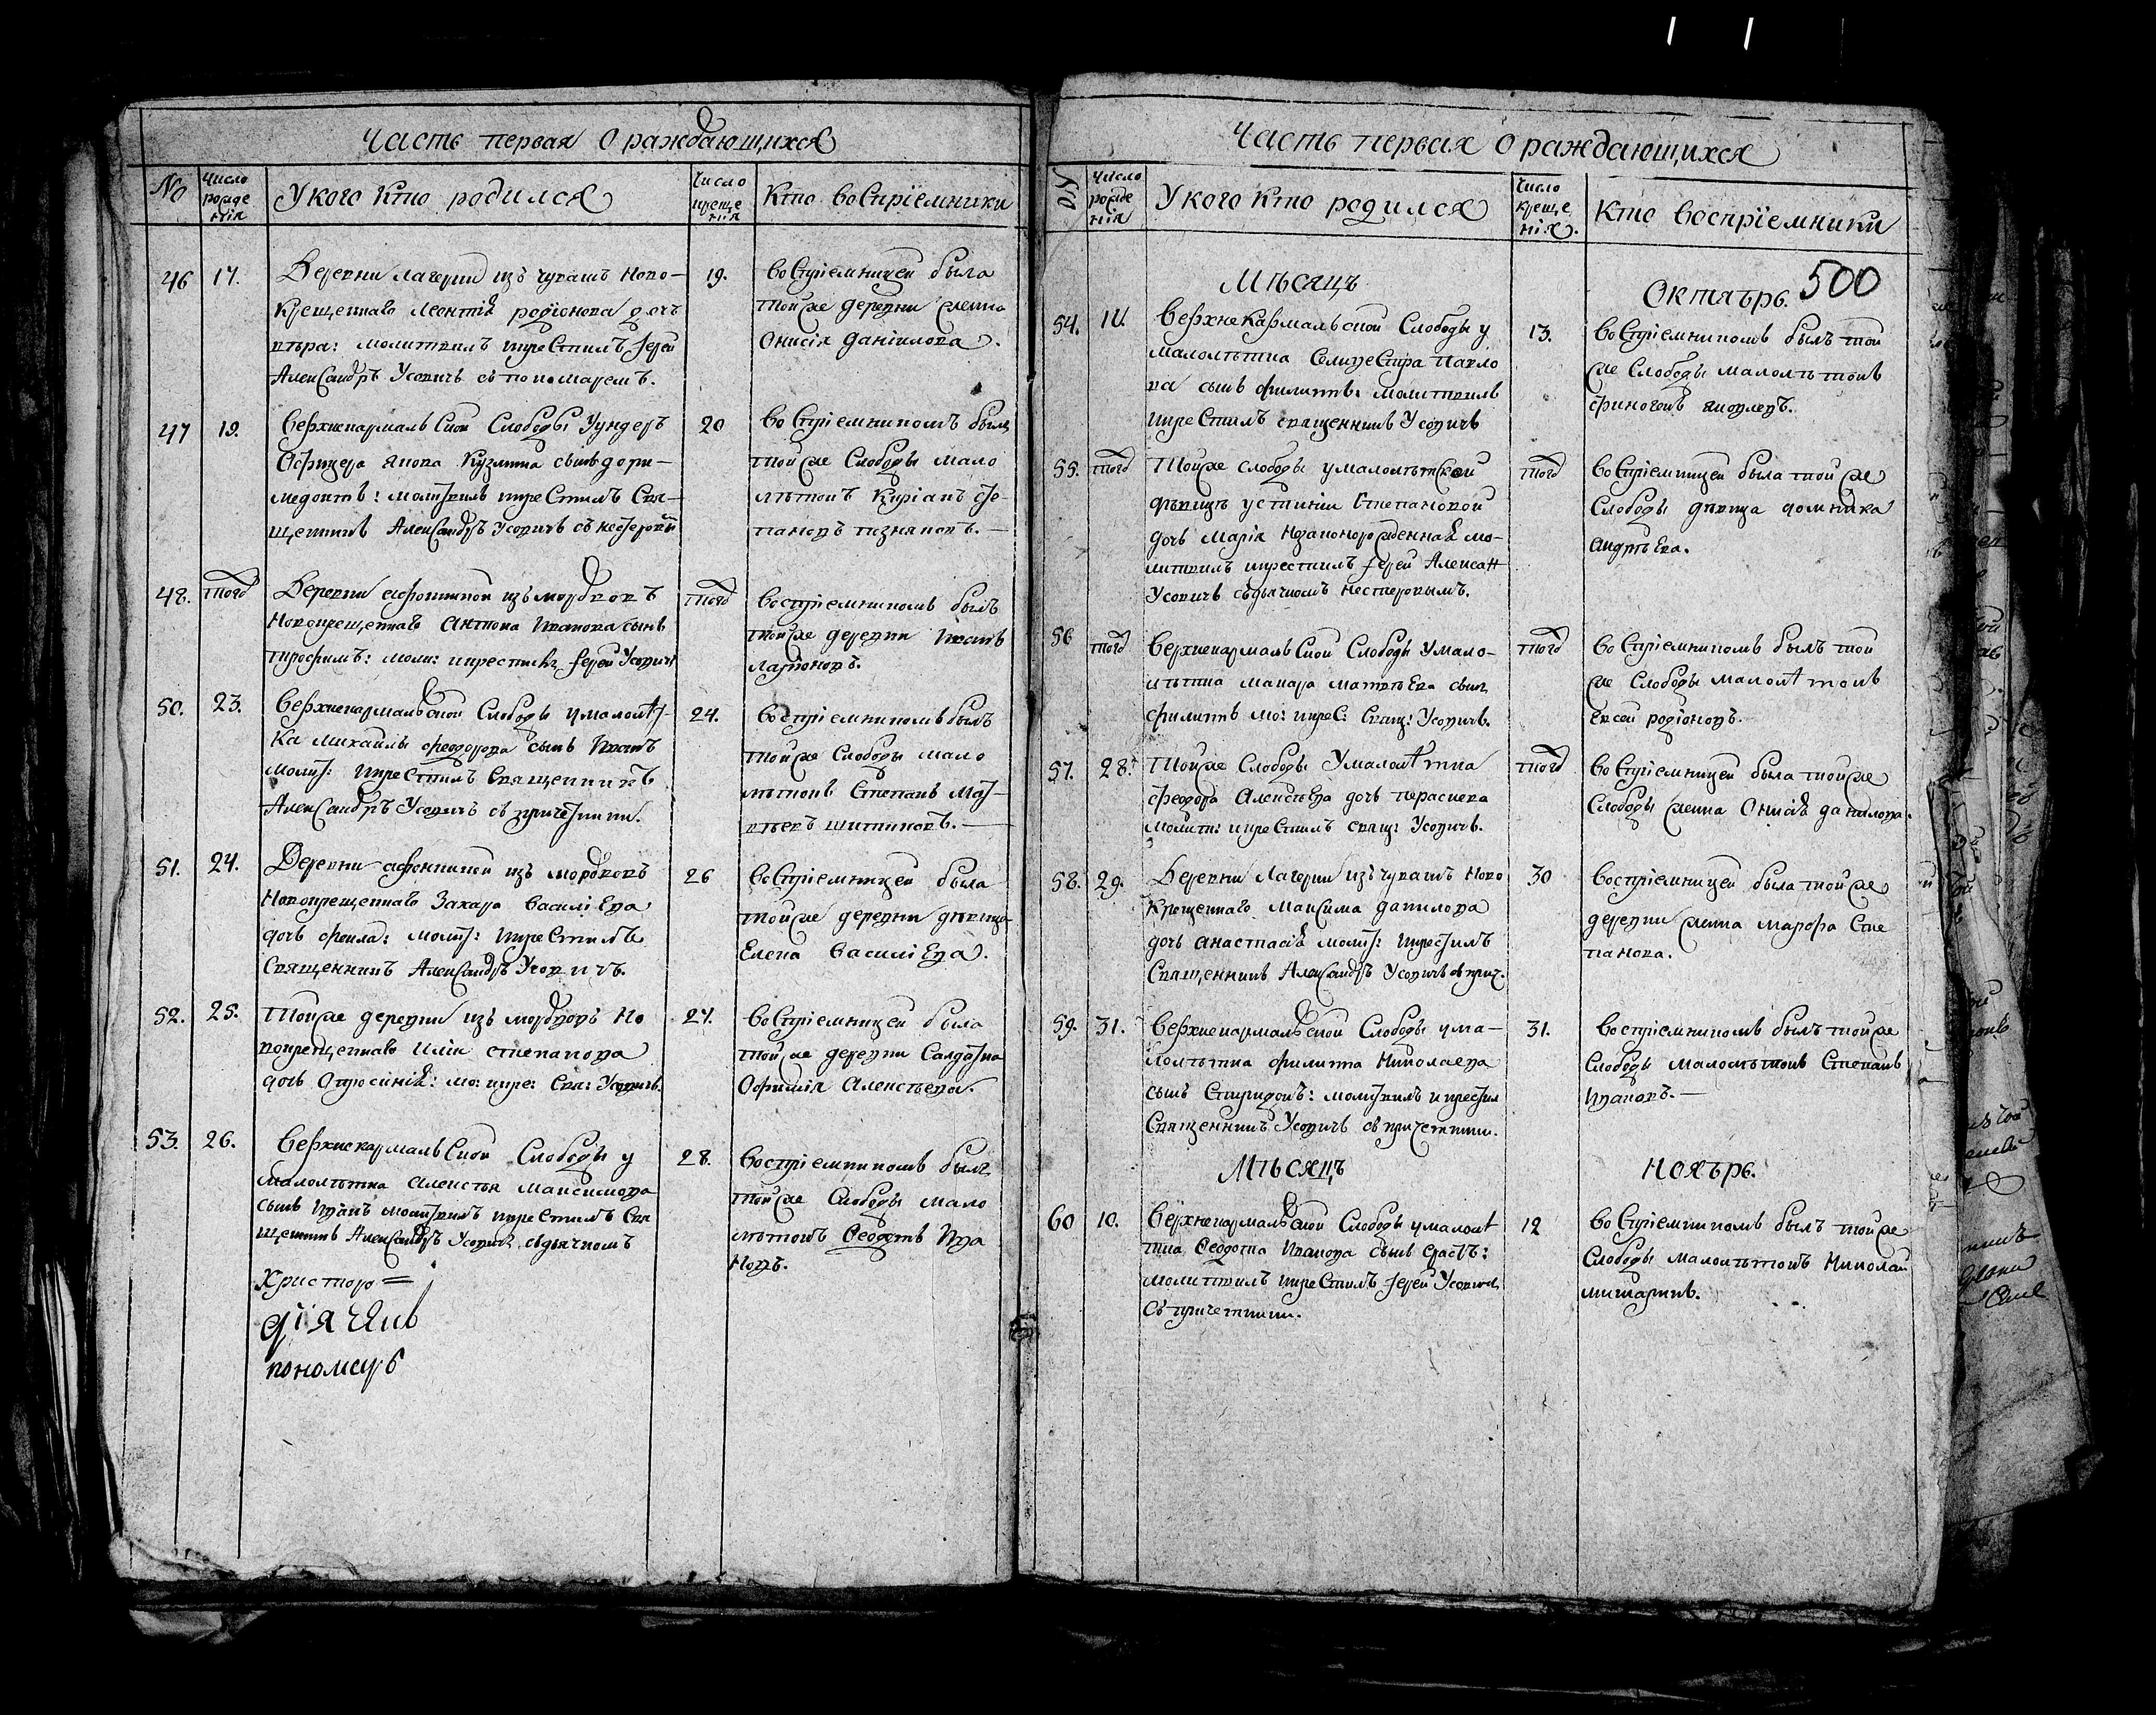 Часть первая о раждающихся
№
Число рожде нія
У кого кто родился
Число креще нія
Кто воспріемники
46
17.
Деревни лагерки изъ чувашъ ново-
крещеннаго леонтія родіонова дочь
молитвилъ и крестилъ іерей
Александръ Усовичь съ пономаремъ.
19.
воспріемницей была
той же деревни женка
Онисія даніилова.
47
19.
Верхнекармальской Слободы у ундеръ
Офицера якова Кузмина сынъ дори-
медонтъ: молитвилъ и крестилъ Свя-
щенникъ Александръ Усовичъ съ нестеровым
20
воспріемникомъ былъ
той же Слободы мало
лѣтокъ Киріакъ сте-
пановъ позняковъ.
48.
тогд
Деревни афонкиной изъ мордвовъ
Новокрещеннаго антона иванова сынъ
трофимъ: моли: и крестилъ іерей Усовичь
тогд
воспріемникомъ былъ
той же деревни иванъ
ларіоновъ.
50.
23.
Верхнекармальской Слободы у малолѣт-
ка михайлы феодорова сынъ иванъ
Молит: и крестилъ Священникъ
Александръ Усовичъ съ причетники.
24.
воспріемникомъ былъ
той же Слободы мало
лѣтокъ Степанъ Мат-
вѣевъ шитиковъ.
51.
24.
Деревни афонкиной изъ мордвовъ
Новокрещеннаго Захара василіева
дочь феклa: молит: и крестилъ
Священникъ Александръ Усовичъ.
26
воспріемницей была
той же деревни дѣвица
Елена василіева.
52.
25.
Той же деревни изъ мордвовъ но
вокрещеннаго иліи степанова
дочь Опросинія: мо: и кре: Свя: Усовичъ.
27.
воспріемницей была
той же деревни Салдатка
Офимія алексѣева.
53.
26.
Верхнекармальской Слободы у
малолѣтка алексѣя максимова
сынъ иванъ молитвилъ и крестилъ Свя
щенникъ Александръ Усовичъ съ дьячкомъ
Христоро=
дiячекъ
пономарь
28.
воспріемникомъ былъ
той же Слободы мало
лѣтокъ Ѳеодотъ ива
новъ.
Часть первая о раждающихся
№
Число рожде нія
У кого кто родился
Число креще нія.
Кто воспріемники
Мѣсяцъ
Октябрь. 500
54.
11.
Верхнекармальской Слободы у
малолѣтка Селивестра павло
ва сынъ филиппъ: молитвилъ
и крестилъ священникъ Усовичъ
13.
воспріемникомъ былъ той
же Слободы малолѣтокъ
финогенъ яковлевъ.
55.
тогд
Той же слободы у малолѣтской
дѣвицы устиніи степановой
дочь Марія незаконорожденная мо-
литвилъ и крестилъ іерей Алексан
Усовичъ съ дьячкомъ нестеровымъ.
тогд
воспріемницей была той же
Слободы дѣвица домника
андрѣева.
56
тогд
Верхнекармальской Слободы у мало-
лѣтка макара матвѣева сынъ
филиппъ мо: и крес: Свящ: Усовичъ.
тогд
воспріемникомъ былъ той
же Слободы малолѣтокъ
евсей родіоновъ.
57.
28.
Той же Слободы у малолѣтка
феодора алексѣева дочь параскева
молит: и крестилъ свящ: Усовичъ.
тогд
воспріемницей была той же
Слободы женка Онисія данилова.
58.
29.
Деревни Лагерки изъ чувашъ ново
крещеннаго Максима данилова
дочь анастасія молит: и крестилъ
Священникъ Александръ Усовичъ съ прич.
30
воспріемницей была той же
деревни женка марфа Сте
панова.
59.
31.
Верхнекармальской Слободы у ма-
лолѣтка филиппа николаева
сынъ Спиридонъ: молитвилъ и крестил
Священникъ Усовичъ съ причетники.
31.
воспріемникомъ былъ той же
Слободы малолѣтокъ Степанъ
ивановъ.
Мѣсяцъ
Ноябрь.
60
10.
Верхнекармальской Слободы у малолѣ
тка Ѳеодота иванова сынъ ерастъ:
молитвилъ и крестилъ іерей Усовичъ
съ причетники.
12
воспріемникомъ былъ той же
Слободы малолѣтокъ Николай